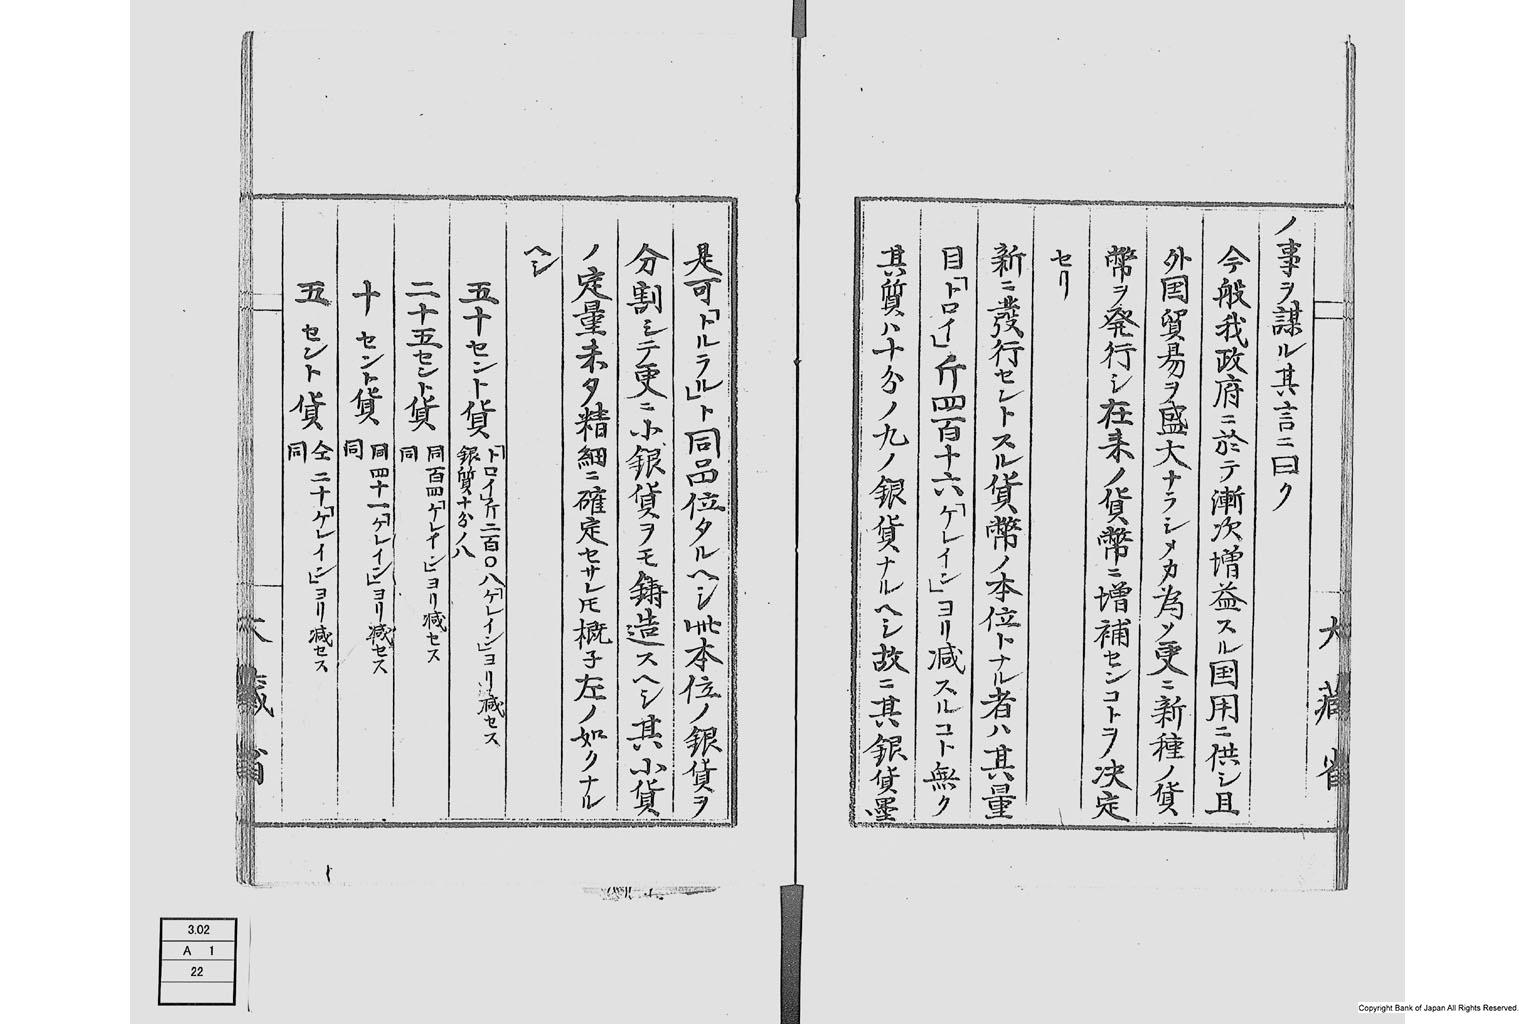 ノ事ヲ謀ル其言ニ曰ク
今般我政府ニ於テ漸次増益スル国用ニ供シ且
外国貿易ヲ盛大ナラシメカ為ソ更ニ新種ノ貨
幣ヲ発行シ在来ノ貨幣ニ増補センコトヲ决定
セリ
新ニ發行セントスル貨幣ノ本位トナル者ハ其量
目「トロイ」斤四百十六「ゲレイン」ヨリ減スルコト無ク
其質ハ十分ノ九ノ銀貨ナルヘシ故ニ其銀貨墨
大藏省
是可「ドルラル」ト同品位タルヘシ此本位ノ銀貨ヲ
分割シテ更ニ小銀貨ヲモ鋳造スヘシ其小貨
ノ定量未タ精細ニ確定セサレ𪜈概子左ノ如クナル
ヘシ
五十セント貨 「トロイ」斤二百〇八「ゲレイン」ヨリ減セス
銀質十分ノ八
二十五セント貨 同百四「ゲレイン」ヨリ減セス
同
十セント貨 同四十一「ゲレイン」ヨリ減セス
同
五セント貨 仝二十「ゲレイン」ヨリ減セス
同
大藏省
3.02
A 1
22
Copyright Bank of Japan All Rights Reserved.